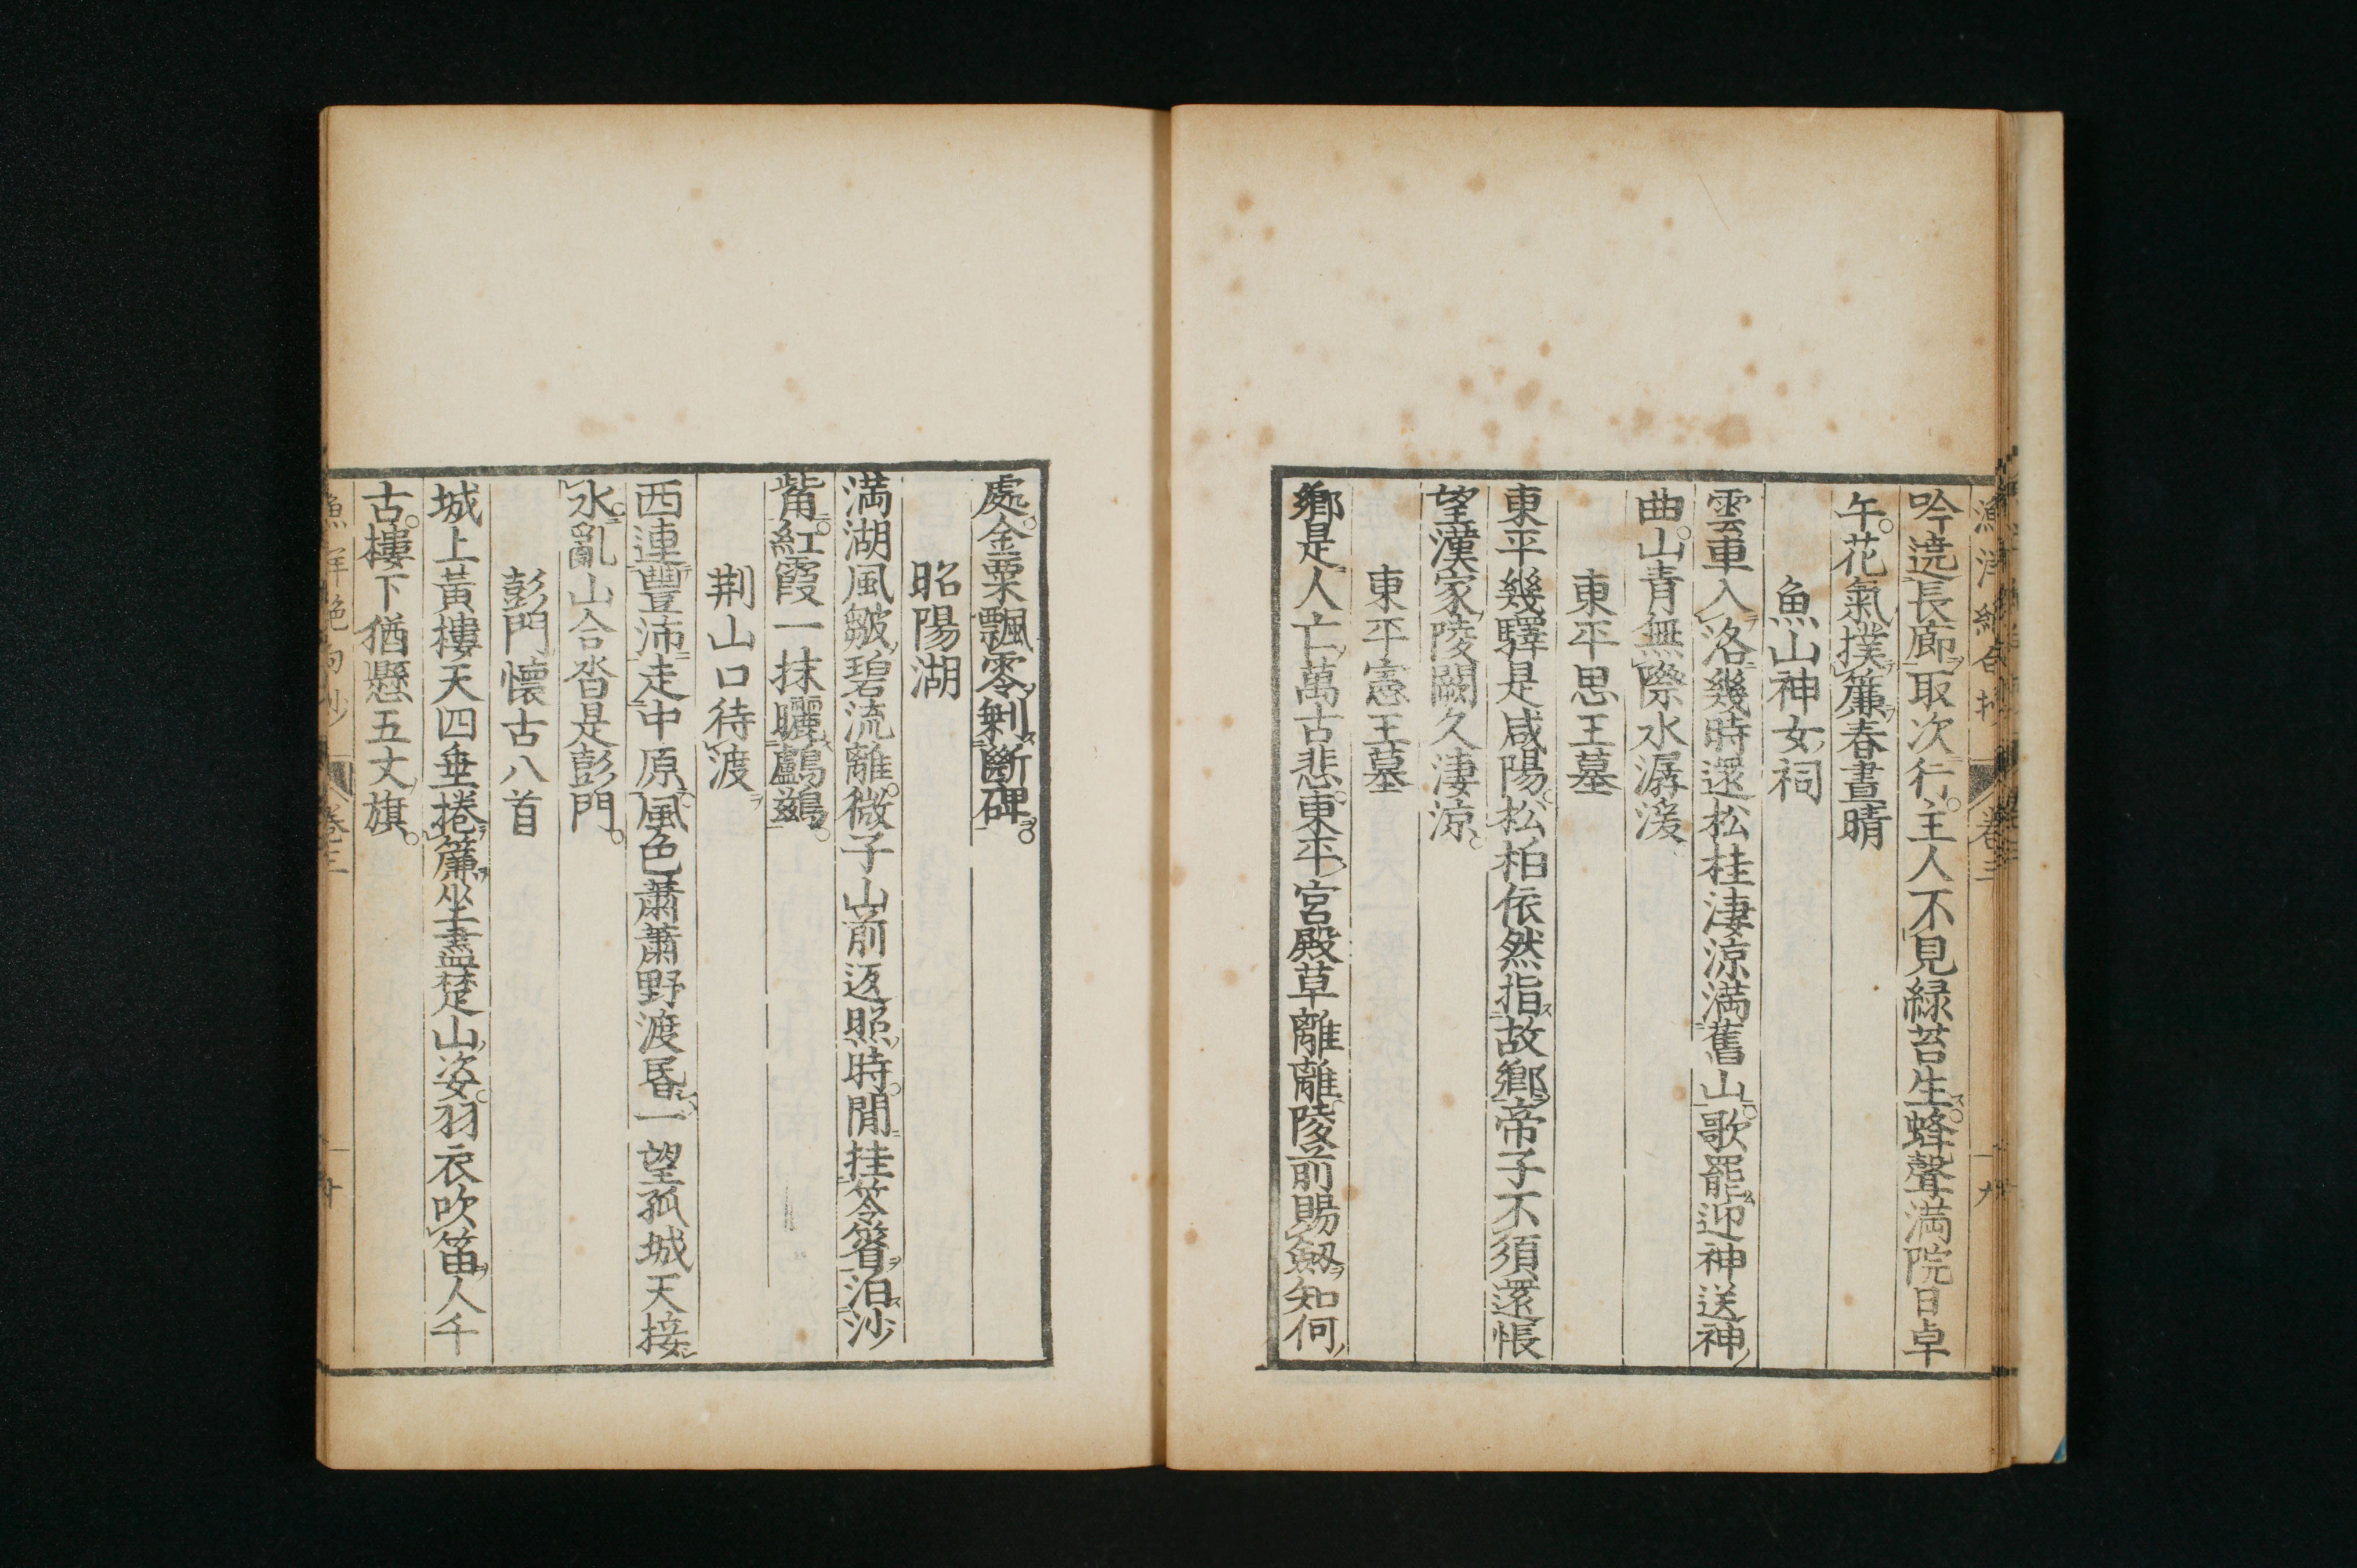 吟遶長廊取次行主人不見緑苔生蜂聲満院日卓
午花氣撲簾春晝晴
魚山神女祠
雲車入洛幾時還松桂淒涼満舊山歌罷迎神送神
曲山青無際水潺湲
東平思王墓
東平幾驛是咸陽松柏依然指故鄉帝子不須還悵
望漢家陵闕久淒涼
東平憲王墓
鄉是人亡萬古悲東平宮殿草離離陵前賜劔知何
處金粟飄零剝斷碑
昭陽湖
満湖風皺碧流離微子山前返照時閒挂笭箵泊沙
觜紅霞一抹曬鸕鷀
荆山口待渡
西連豐沛走中原風色蕭蕭野渡昬一望孤城天接
水亂山合沓是彭門
彭門懷古八首
城上黃樓天四垂捲簾坐盡楚山姿羽衣吹笛人千
古樓下猶懸五丈旗
卷三